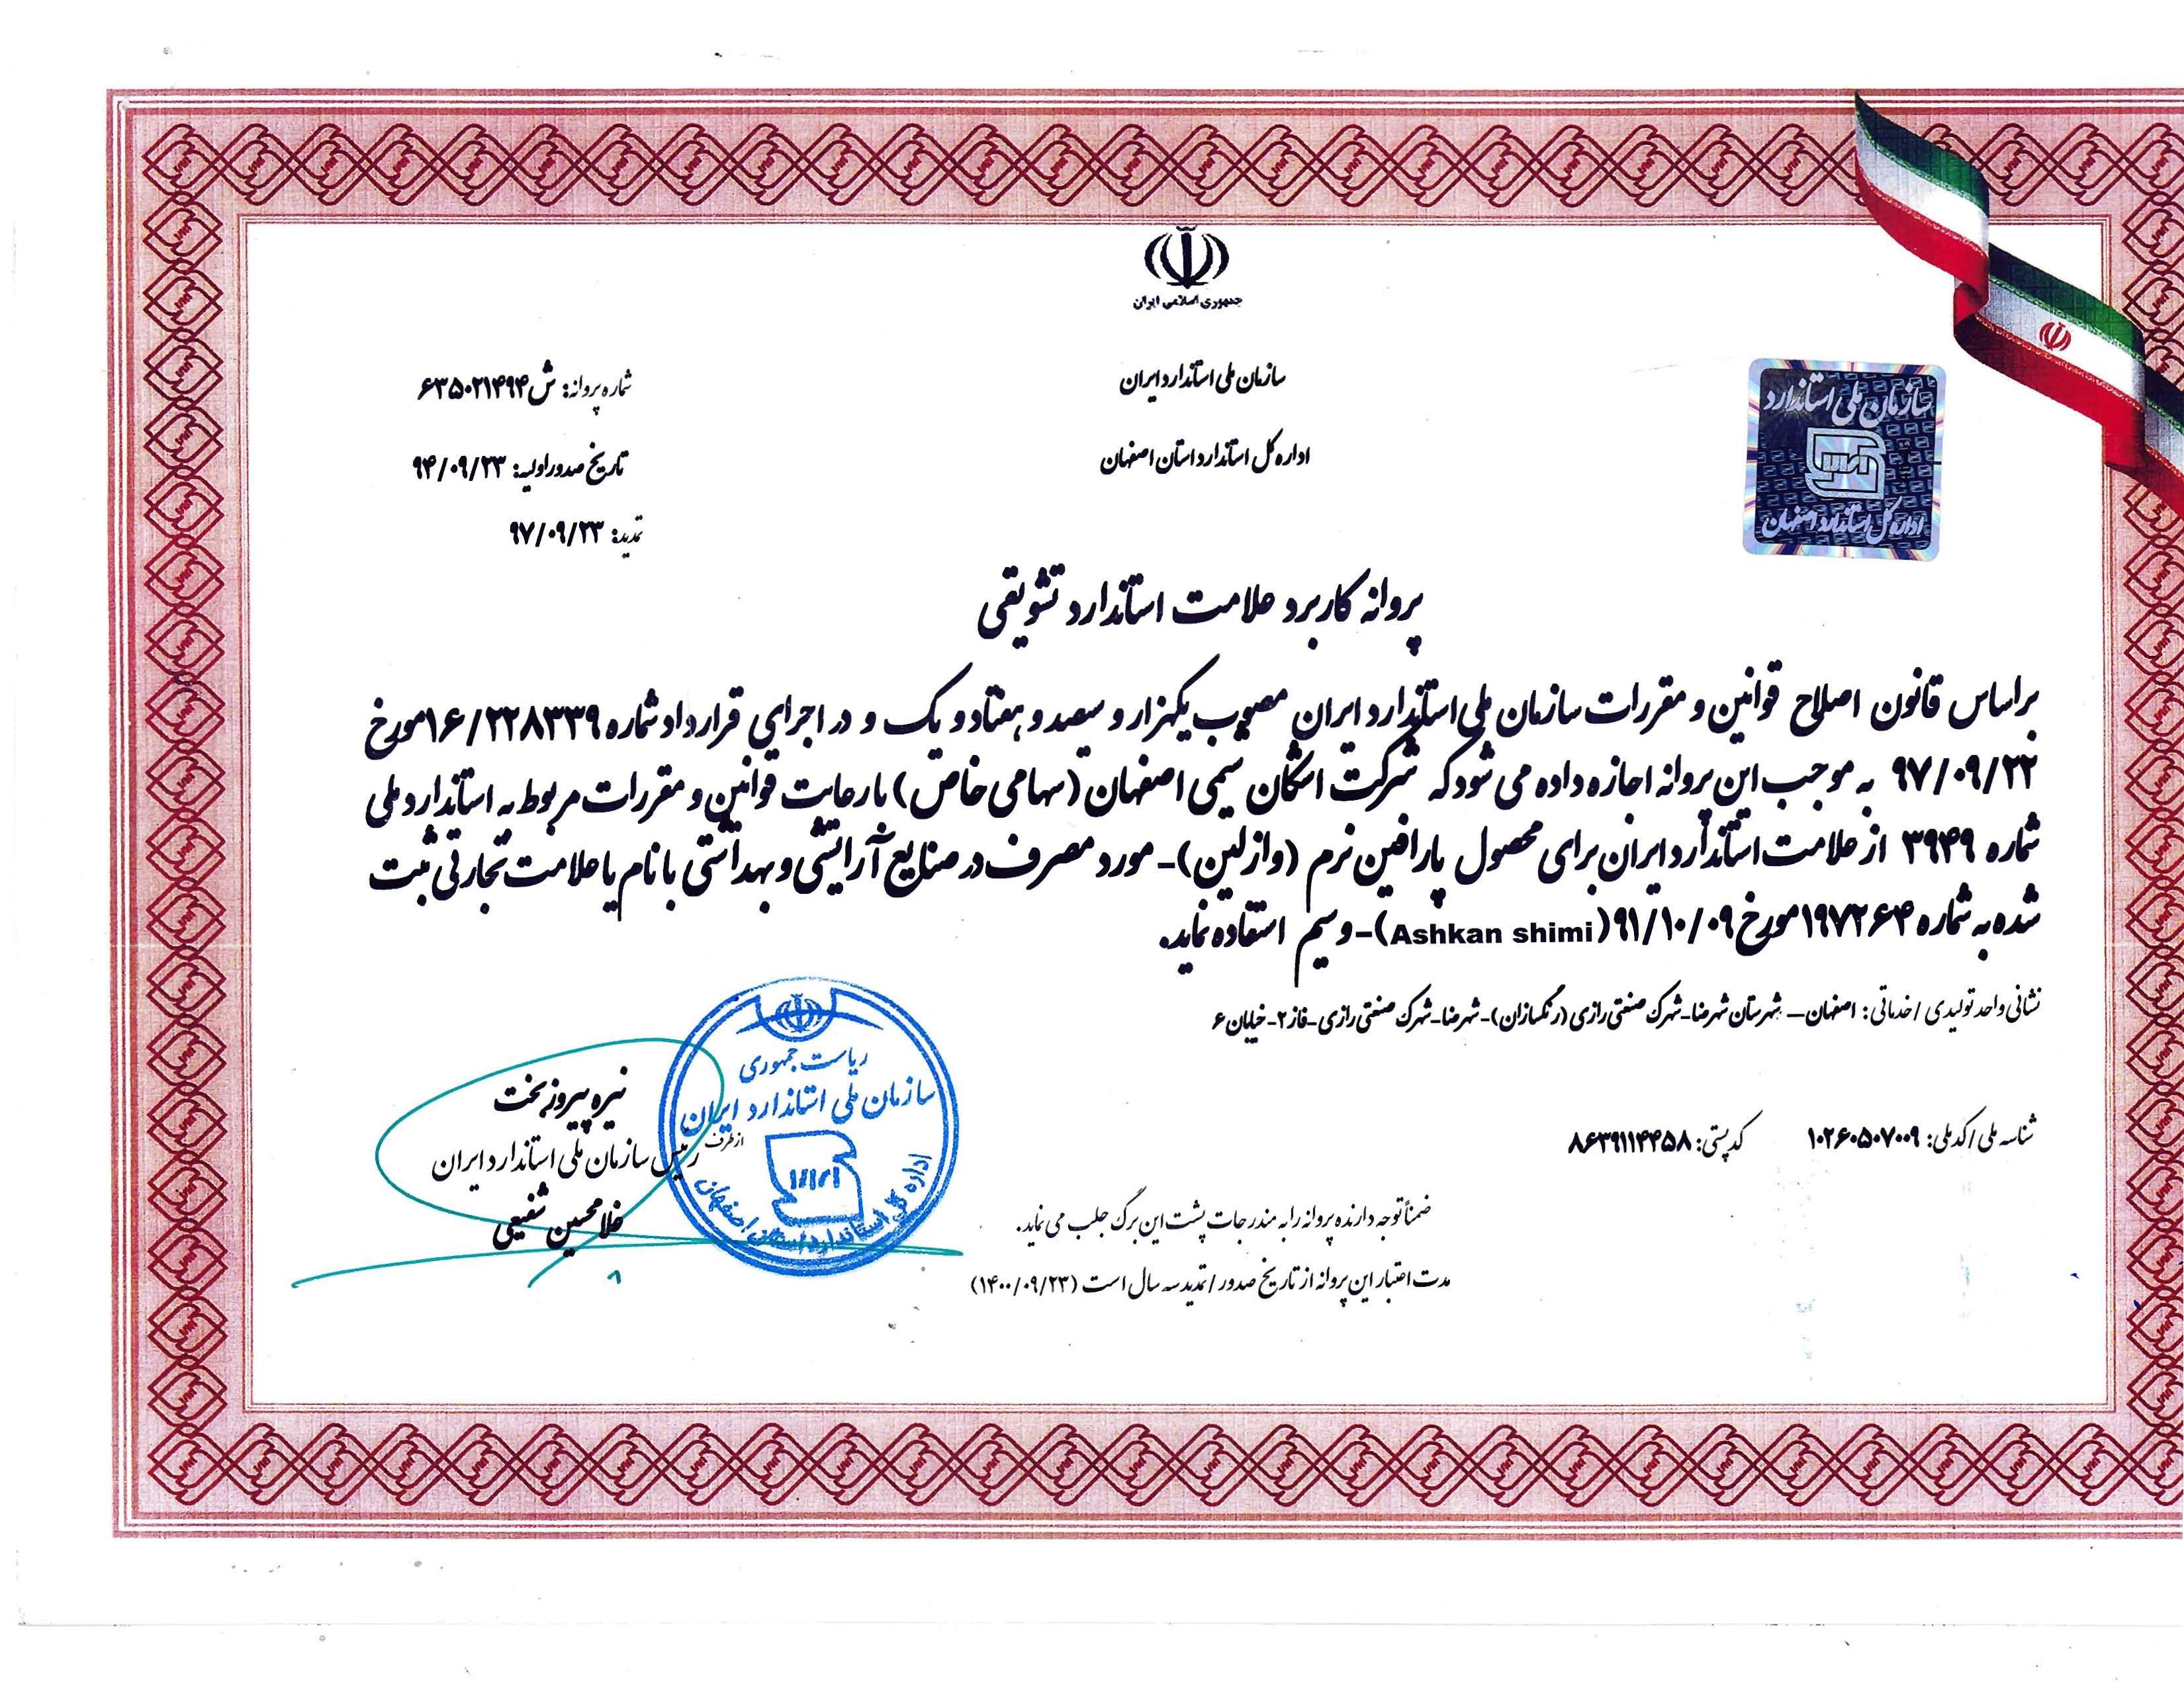 جمهوری اسلامی ایران
سازمان ملی استاندارد ایران
اداره کل استاندارد استان اصفهان
سازمان ملی استاندارد
اداره کل استاندارد اصفهان
شماره پروانه: ش۶۳۵۰۲۱۴۹۴
تاریخ صدور اولیه: ۹۴/۰۹/۲۳
تمدید: ۹۷/۰۹/۲۳
پروانه کاربرد علامت استاندارد تشویقی
براساس قانون اصلاح قوانین و مقررات سازمان ملی استاندارد ایران مصوب یکهزار و سیصد و هفتاد و یک و در اجرای قرارداد شماره ۱۶/۲۲۸۳۳۹مورخ
۹۷/۰۹/۲۲ به موجب این پروانه اجازه داده می شود که شرکت اشکان شیمی اصفهان (سهامی خاص) با رعایت قوانین و مقررات مربوط به استاندارد ملی
شماره ۳۹۴۹ از علامت استاندارد ایران برای محصول پارافین نرم (وازلین)- مورد مصرف در صنایع آرایشی و بهداشتی با نام یا علامت تجارتی ثبت
شده به شماره ۱۹۷۲۶۴مورخ ۹۱/۱۰/۰۹(Ashkan shimi)-وسیم استفاده نماید.
نشانی واحد تولیدی / خدماتی: اصفهان– شهرستان شهرضا-شهرک صنعتی رازی (رنگسازان)-شهرضا-شهرک صنعتی رازی-فاز ۲-خیابان ۶
شناسه ملی / کدملی: ۱۰۲۶۰۵۰۷۰۰۹ کدپستی: ۸۶۳۹۱۱۴۴۵۸
ضمنأ توجه دارنده پروانه را به مندرجات پشت این برگ جلب می نماید.
مدت اعتبار این پروانه از تاریخ صدور / تمدید سه سال است (۱۴۰۰/۰۹/۲۳)
نیره پیروزبخت
رئیس سازمان ملی استاندارد ایران
از طرف
غلامحسین شفیعی
ریاست جمهوری
سازمان ملی استاندارد ایران
اداره کل استاندارد استان اصفهان